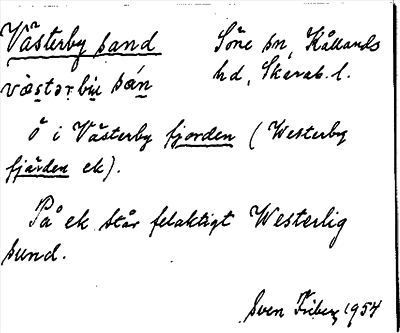 Västerby sand Söne sn, Kållands
västərbıı sán hd, Skarab. l.
ö i Västerby fjorden (Westerby
fjärden ek).
På ek står felaktigt Westerlig
sund.
Sven Friberg 1954